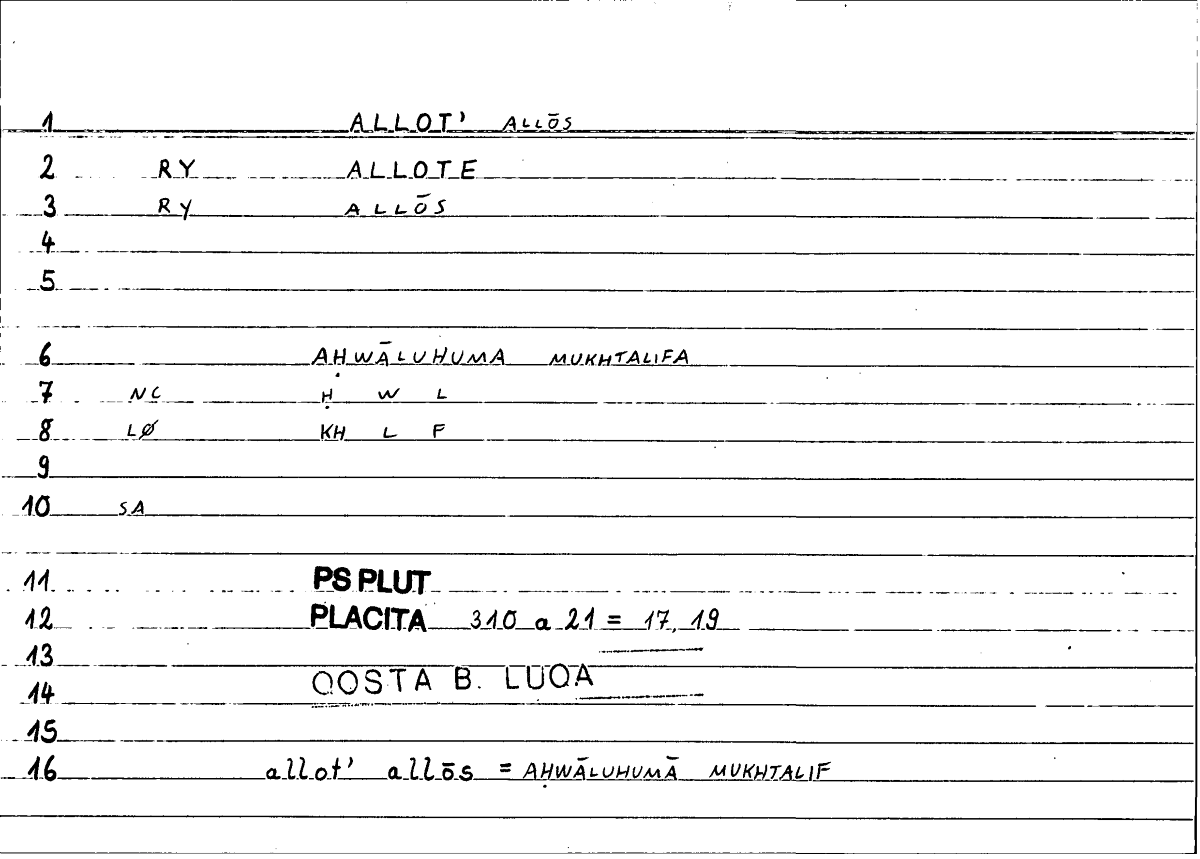 1 ALLOT' ALLŌS
2 RY ALLOTE
3 RY ALLŌS
4
5
6 AḤWĀLUHUMA MUKHTALIFA
7 NC Ḥ W L
8 LØ KH L F
9
10 SA
11 PS PLUT
12 PLACITA 310 a 21 = 17, 19
13
14 QOSTA B. LUQA
15
16 allot' allōs = AḤWĀLUHUMĀ MUKHTALIF